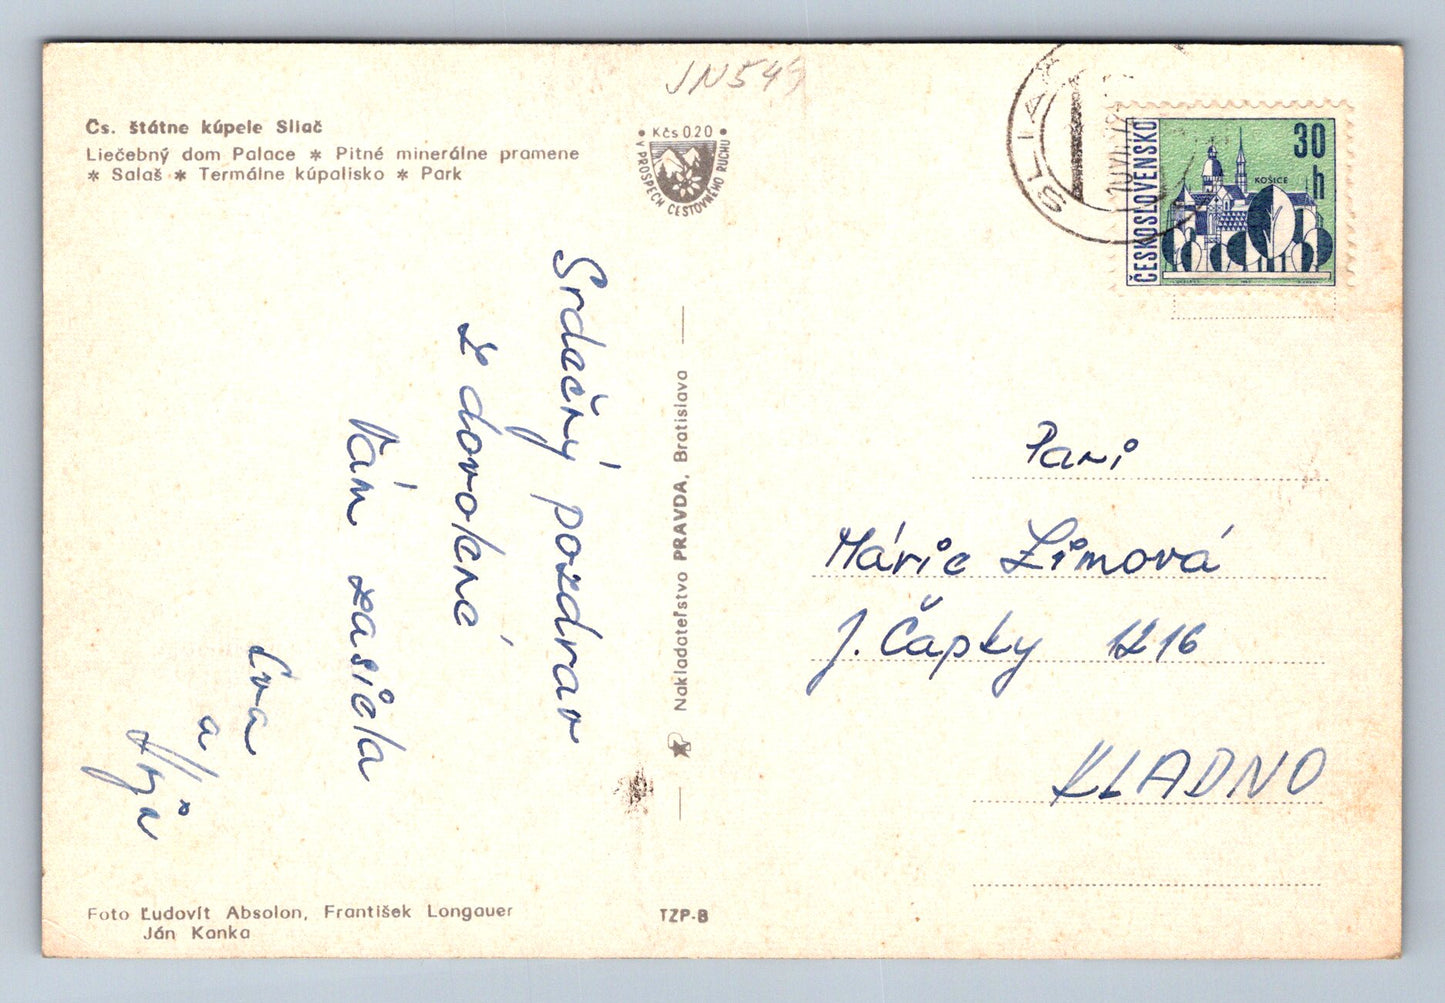 JN549
Čs. štátne kúpele Sliač
Liečebný dom Palace * Pitné minerálne pramene
* Salaš * Termálne kúpalisko * Park
Kčs 0.20
V PROSPECH CESTOVNÉHO RUCHU
SLIAČ
ČESKOSLOVENSKO
30
h
KOŠICE
Srdečný pozdrav
z dovolené
Vám zasiela
Eva
a
Nakladateľstvo PRAVDA, Bratislava
Pani
Márie Zimová
J. Čapky 1216
KLADNO
Foto Ľudovít Absolon, František Longauer
Ján Kanka
TZP-B